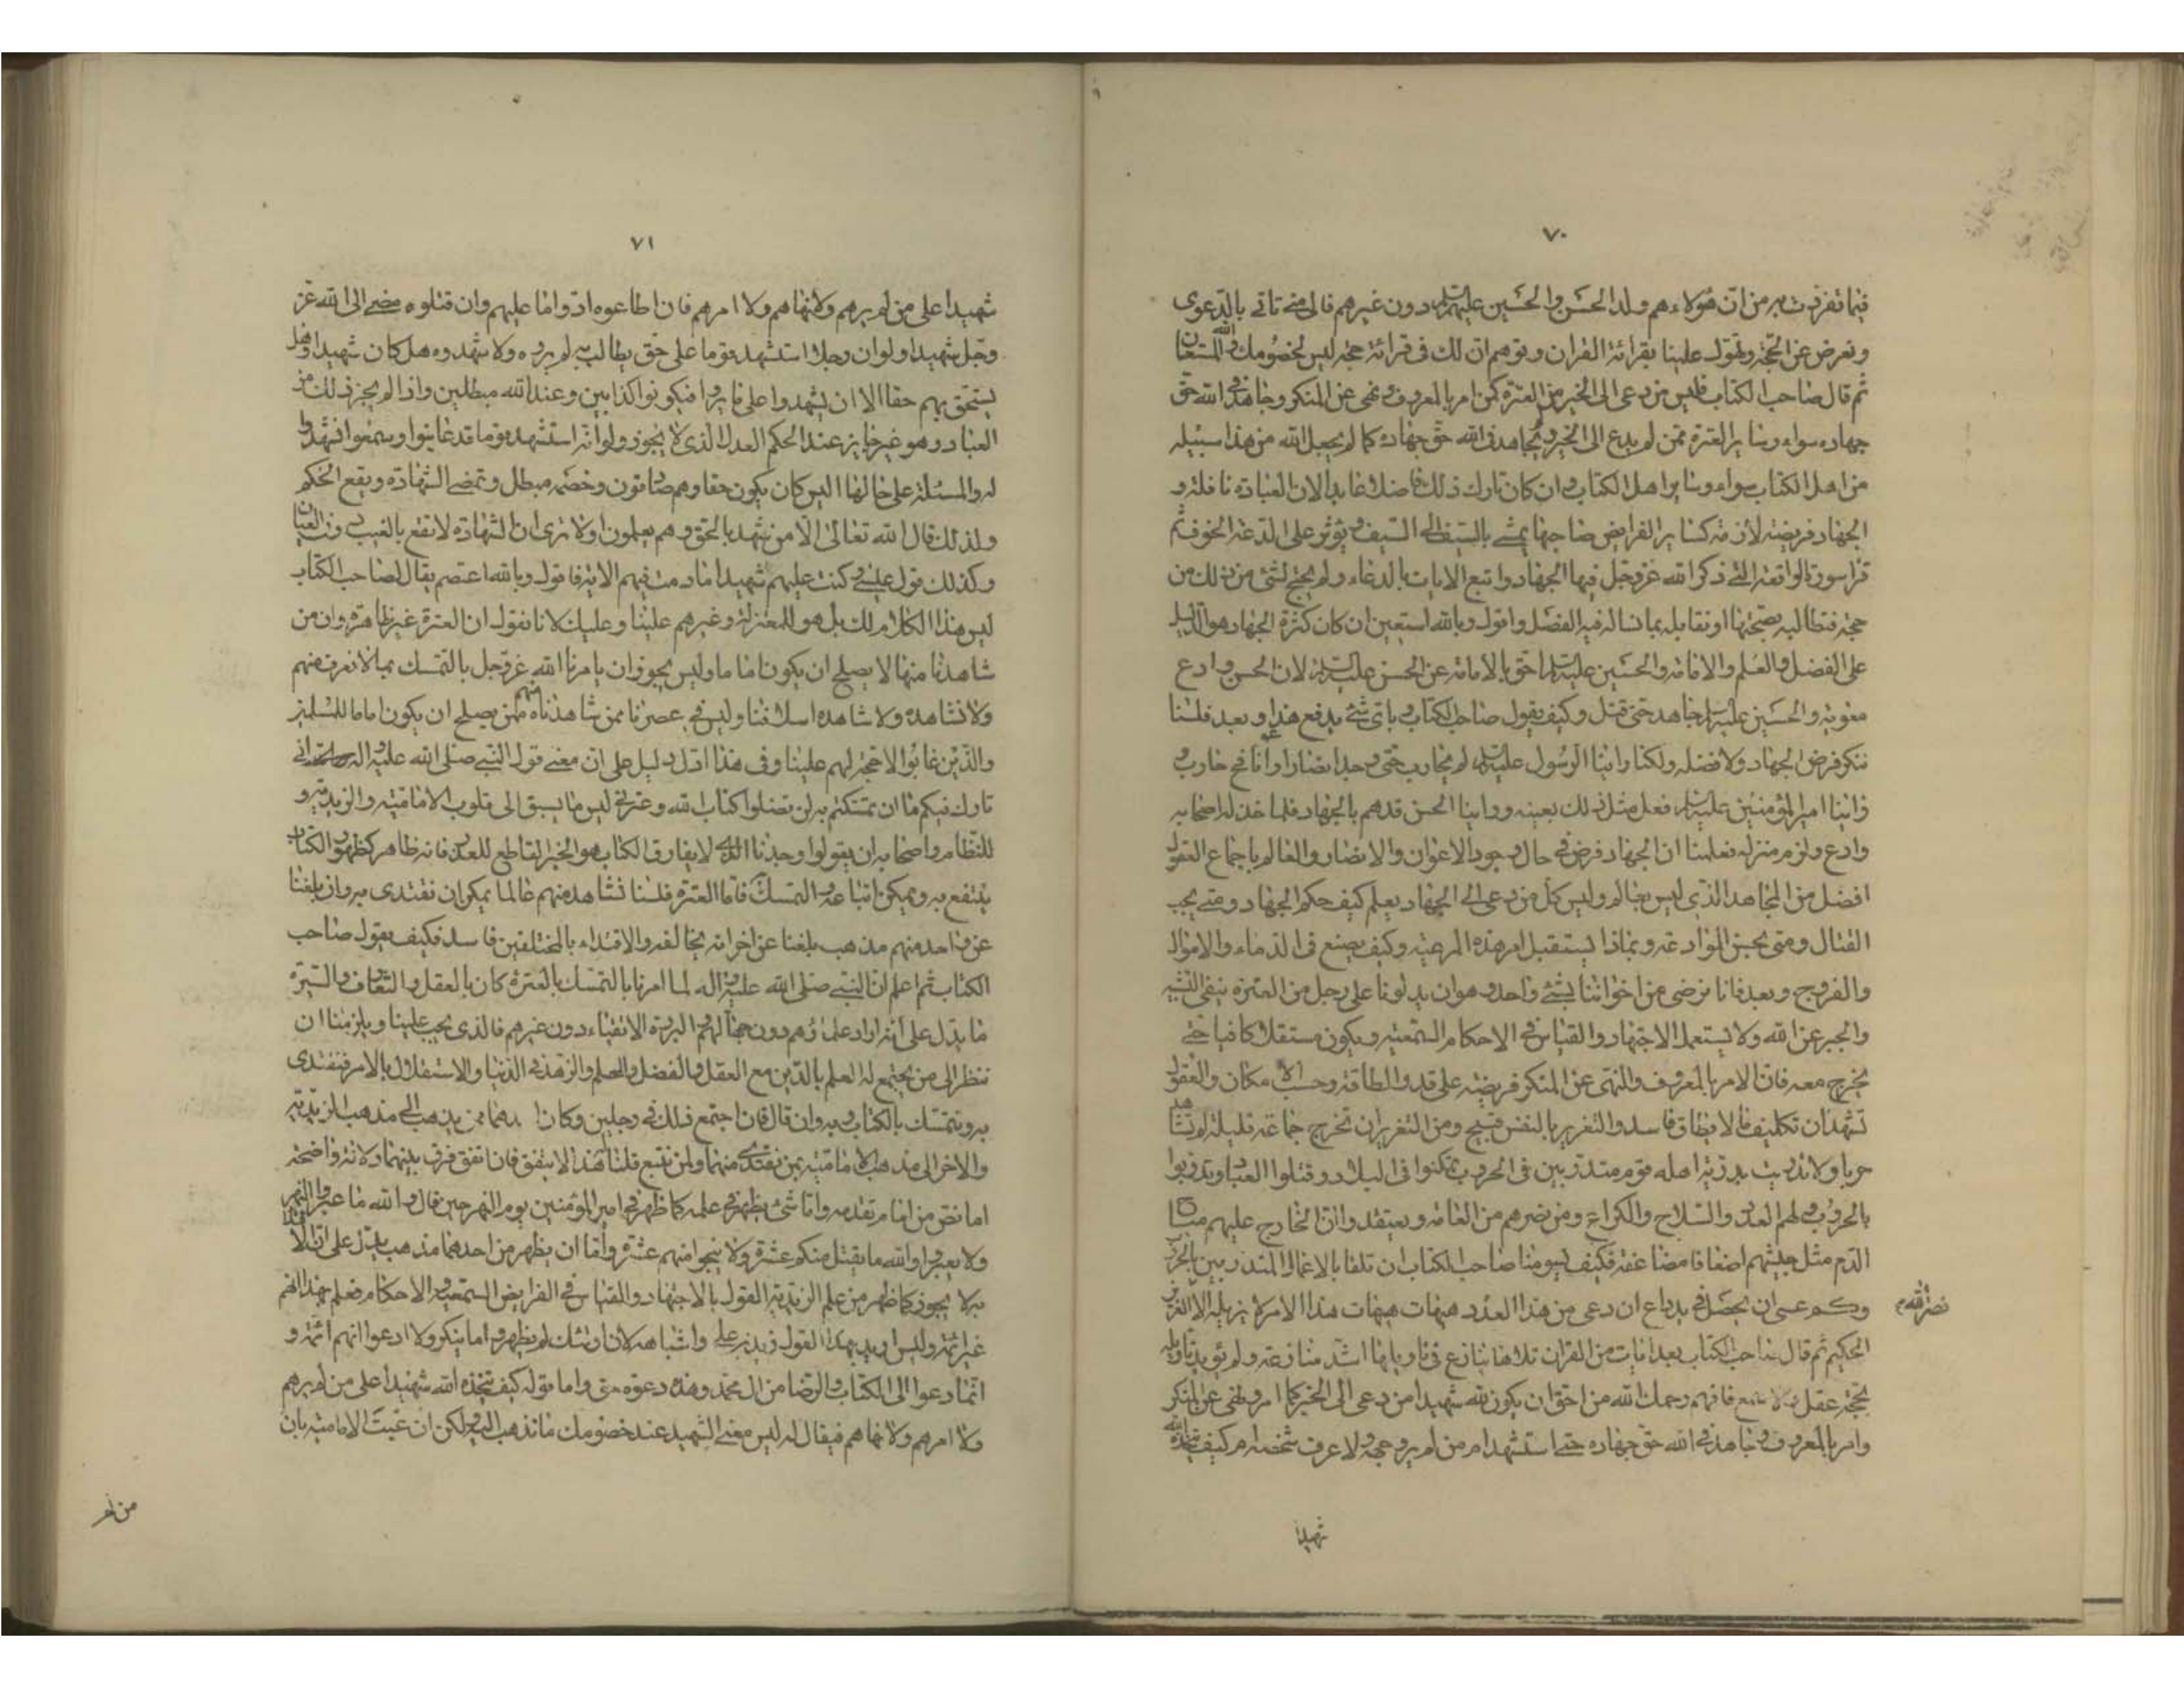 ٧٠
فيما تفردت به من ان هؤلاء هم ولد الحسن والحسين عليهم السلام دون غيرهم فالى متى تاتى بالدعوى
وتعرض عن الحجة وتقول علينا بقرائة القران وتوهم ان لك فى قرائة حجة ليس لخصومك والله المستعان
ثم قال صاحب الكتاب فليس من دعى الى الخير من العترة كمن امر بالمعروف ونهى عن المنكر وجاهد فى الله حق
جهاده سواء وساير العترة ممن لم يدع الى الخير ولم يجاهد فى الله حق جهاده كما لم يجعل الله من هذا سبيله
من اهل الكتاب سواء وساير اهل الكتاب وان كان تارك ذلك فاضلا عابدا لان العبادة نافلة و
الجهاد فريضة لازمة كساير الفرايض صاحبها يمشى بالسيف الى السيف ويؤثر على الدعة الخوف ثم
قرا سورة الواقعة التى ذكر الله عز وجل فيها الجهاد واتبع الايات بالدعاء ولم يحتج لشئ من ذلك من
حجة فنطالبه بصحتها او نقابله بما نساله فيه الفصل واقول وبالله استعين ان كان كثرة الجهاد هو الدليل
على الفضل والعلم والامامة والحسين عليه السلام احق بالامامة عن الحسن عليه السلام لان الحسن وادع
معوية والحسين عليه السلام جاهد حتى قتل وكيف يقول صاحب الكتاب وباى شئ يدفع هذا وبعد فلسنا
ننكر فرض الجهاد ولا فضله ولكنا راينا الرسول عليه السلام لم يحارب حتى وجد انصارا واعوانا فح حارب
وراينا امير المؤمنين عليه السلام فعل مثل ذلك بعينه وراينا الحسن قد هم بالجهاد فلما خذله اصحابه
وادع ولزم منزله فعلمنا ان الجهاد فرض فى حال وجود الاعوان والانصار والعالم باجماع العقول
افضل من المجاهد الذى ليس بعالم وليس كل من دعى الى الجهاد يعلم كيف حكم الجهاد ومتى يجب
القتال ومتى يحسن الموادعة وبماذا يستقبل امر هذه الرعية وكيف يصنع فى الدماء والاموال
والفروج وبعد فانا نرضى من اخواننا بشئ واحد وهو ان يدلونا على رجل من العترة ينفى التشبيه
والجبر عن الله ولا يستعمل الاجتهاد والقياس فى الاحكام السمعية ويكون مستقلا كافيا حتى
نخرج معه فان الامر بالمعروف والنهى عن المنكر فريضة على قدر الطاقة وحسب الامكان والعقول
تشهد ان تكليف ما لا يطاق فاسد والتغرير بالنفس قبيح ومن التغرير ان تخرج جماعة قليلة لم تشاهد
حربا ولا تدربت بدربة اهله قوم متدربين فى الحروب تمكنوا فى البلاد وقتلوا العباد وتدربوا
بالحروب ولهم العدد والسلاح والكراع ومن نصرهم من العامة ويعتقد وان الخارج عليهم مباح
الدم مثل جيشهم اضعافا مضاعفة فكيف يسومنا صاحب الكتاب ان نلقا بالاغمار المتدربين بالحرب
وكم عسى ان يحصل فى يد داع ان دعى من هذا العدد هيهات هيهات هذا الامر لا يزيله الا العزيز
نصر الله
الحكيم ثم قال صاحب الكتاب بعد ايات من القران تلاها ينازع فى تاويلها اشد منازعة ولم يؤيد تاويله
بحجة عقل ولا سمع فافهم رحمك الله من احق ان يكون لله شهيدا من دعى الى الخير كما امر ونهى عن المنكر
وامر بالمعروف وجاهد فى الله حق جهاده حتى استشهد ام من لم ير وجهه ولا عرف شخصه ام كيف يتخذه الله
شهيدا
٧١
شهيدا على من لم يرهم ولا نهاهم ولا امرهم فان اطاعوه ادوا ما عليهم وان قتلوه مضى الى الله عز
وجل شهيدا ولو ان رجلا استشهد قوما على حق يطالب به لم يروه ولا شهدوه هل كان شهيدا وهل
يستحق بهم حقا الا ان يشهدوا على ما لم يروا فيكونوا كذابين وعند الله مبطلين واذا لم يجز ذلك من
العباد وهو غير جايز عند الحكم العدل الذى لا يجوز ولو انه استشهد قوما قد عاينوا وسمعوا فشهدوا
له والمسئلة على حالها اليس كان يكون حقا وهم صادقون وخصمه مبطل وتمضى الشهادة ويقع الحكم
ولذلك قال الله تعالى الا من شهد بالحق وهم يعلمون اولا ترى ان الشهادة لا تقع بالغيب دون العيان
وكذلك قول عيسى وكنت عليهم شهيدا ما دمت فيهم الاية فاقول وبالله اعتصم يقال لصاحب الكتاب
ليس هذا الكلام لك بل هو للمعتزلة وغيرهم علينا وعليك لانا نقول ان العترة غير ظاهرة وان من
شاهدنا منها لا يصلح ان يكون اماما وليس يجوز ان يامرنا الله عز وجل بالتمسك بما لا نعرف منهم
ولا نشاهده ولا شاهده اسلافنا وليس فى عصرنا ممن شاهدناه منهم ممن يصلح ان يكون اماما للمسلمين
والذين غابوا لا حجة لهم علينا وفى هذا ادل دليل على ان معنى قول النبى صلى الله عليه واله انى
تارك فيكم ما ان تمسكتم به لن تضلوا كتاب الله وعترتى ليس ما يسبق الى قلوب الامامية والزيدية و
للنظام واصحابه ان يقولوا وجدنا الذى لا يفارق الكتاب هو الخبر القاطع للعذر فانه ظاهر كظهور الكتاب
ينتفع به ويمكن اتباعه والتمسك به فاما العترة فلسنا نشاهد منهم عالما يمكن ان نقتدى به وان بلغنا
عن واحد منهم مذهب بلغنا عن اخر انه يخالفه والاقتداء بالمختلفين فاسد فكيف يقول صاحب
الكتاب ثم اعلم ان النبى صلى الله عليه واله لما امرنا بالتمسك بالعترة كان بالعقل والتعارف والسيرة
ما يدل على انه اراد علماؤهم دون جهالهم والبررة الاتقياء دون غيرهم فالذى يجب علينا ويلزمنا ان
ننظر الى من يجتمع له العلم بالدين مع العقل والفضل والحلم والزهد فى الدنيا والاستقلال بالامر فنقتدى
به ونتمسك بالكتاب وبه وان قال فان اجتمع ذلك فى رجلين وكان احدهما ممن يذهب الى مذهب الزيدية
والاخر الى مذهب الامامية بمن نقتدى منهما ولمن نتبع قلنا هذا لا يتفق فان اتفق فرق بينهما دلالة واضحة
اما نص من امام تقدمه واما شئ يظهر فى علمه كما ظهر فى امير المؤمنين يوم النهر حين قال والله ما عبروا النهر
ولا يعبروا والله ما يقتل منكم عشرة ولا ينجو منهم عشرة واما ان يظهر من احدهما مذهب يدل على ان الاقتداء
به لا يجوز كما ظهر من علم الزيدية القول بالاجتهاد والقياس فى الفرايض السمعية والاحكام فعلم بهذا انهم
غير ائمة وليس اريد بهذا القول زيد بن على واشباهه لان اولئك لم يظهروا ما ينكر ولا ادعوا انهم ائمة و
انما دعوا الى الكتاب والرضا من ال محمد وهذه دعوة حق واما قوله كيف يتخذه الله شهيدا على من لم يرهم
ولا امرهم ولا نهاهم فيقال له ليس معنى الشهيد عند خصومك ما تذهب اليه ولكن ان عبت الامامية بان
من لم